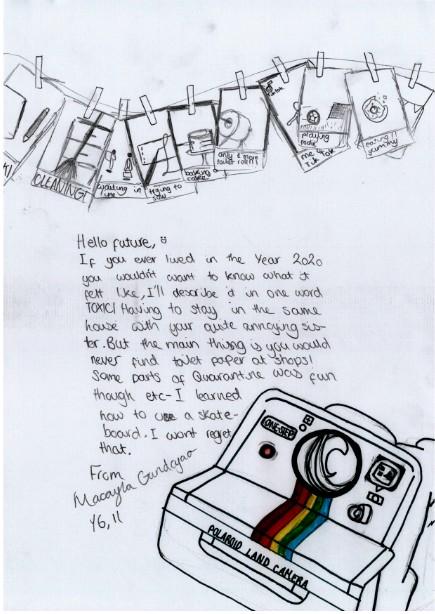 CLEANING!
trying to sew
baking cakes
only 2 more toilet rolls!!
playing roblox
me TikTok
eating!! yummy
Hello future,
If you ever lived in the Year 2020
you wouldn't want to know what it
felt like, I'll describe it in one word
TOXIC! Having to stay in the same
house with your quite annoying sis-
ter. But the main thing is you would
never find toilet paper at shops!
Some parts of Quarantine was fun
though etc- I learned
how to use a skate-
board. I wont regret
that.
From
Macayla
Y6, 11
ONE-STEP
POLAROID LAND CAMERA